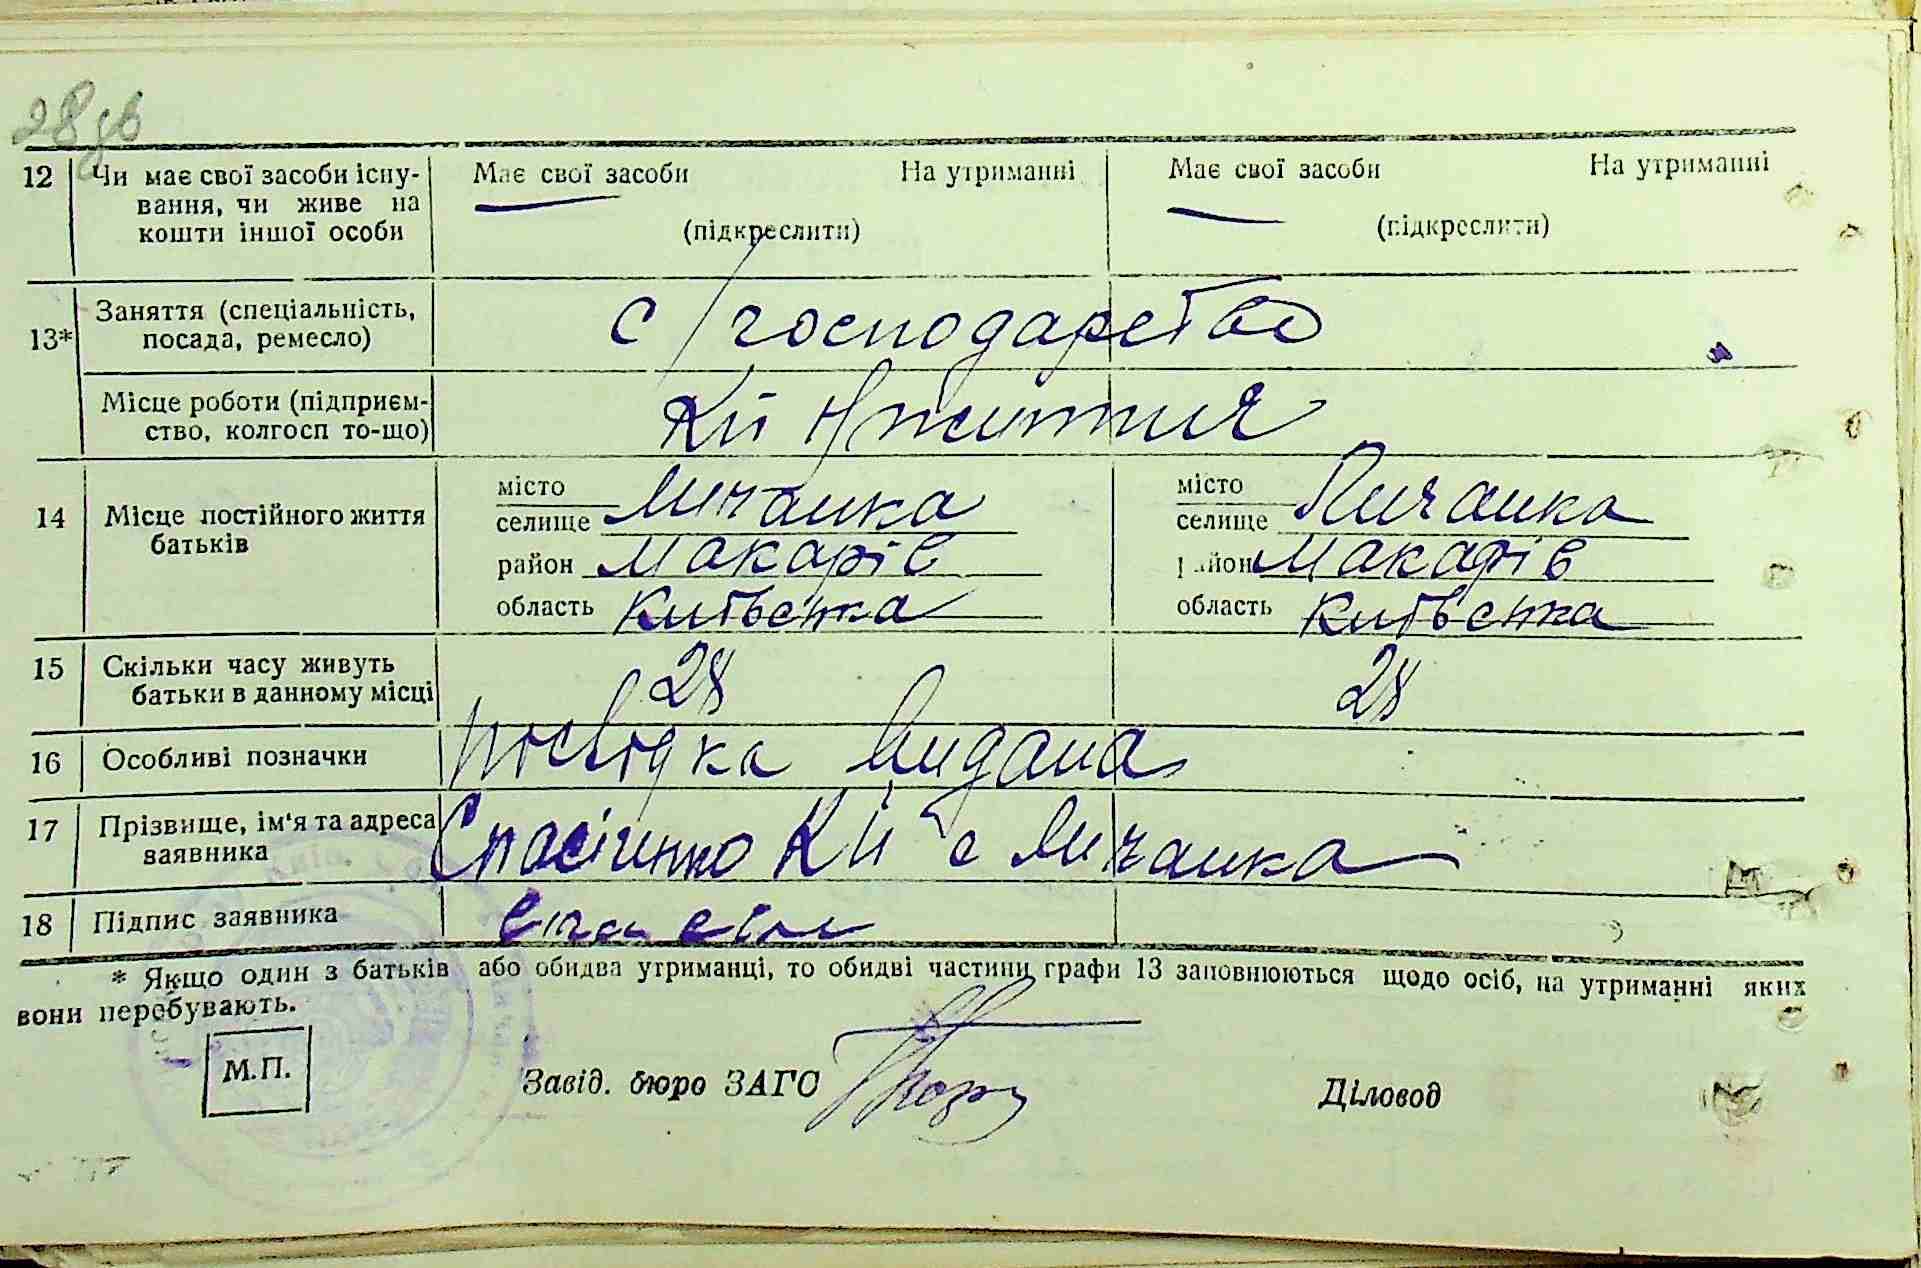 28 зв
12 Чи має свої засоби існу- Має свої засоби На утриманні Має свої засоби На утриманні
вання, чи живе на
кошти іншої особи (підкреслити) (підкреслити)
Заняття (спеціальність, с/господарство
13* посада, ремесло)
Місце роботи (підприєм-
ство, колгосп то-що)
місто місто
14 Місце постійного життя селище Личанка селище Личанка
батьків район Макарів район Макарів
область Київська область Київська
15 Скільки часу живуть 28 28
батьки в данному місці
16 Особливі позначки посвідка видана
17 Прізвище, ім'я та адреса К Й с Личанка
заявника
18 Підпис заявника
* Якщо один з батьків або обидва утриманці, то обидві частини графи 13 заповнюються щодо осіб, на утриманні яких
вони перебувають.
М.П. Завід. бюро ЗАГС Діловод